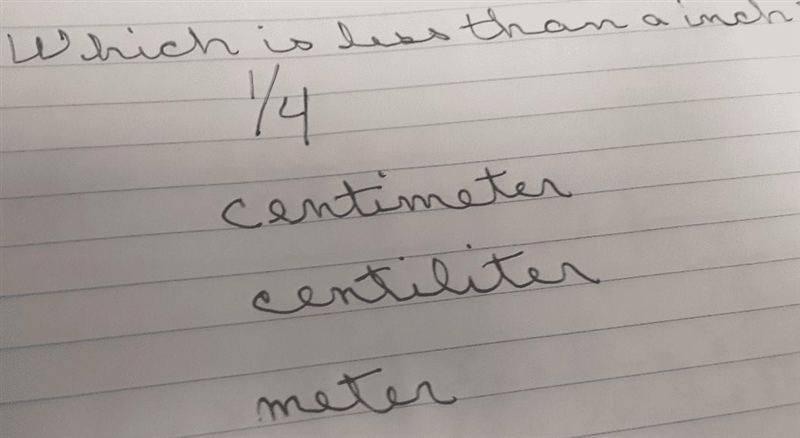 Which is less than a inch
1/4
centimeter
centiliter
meter